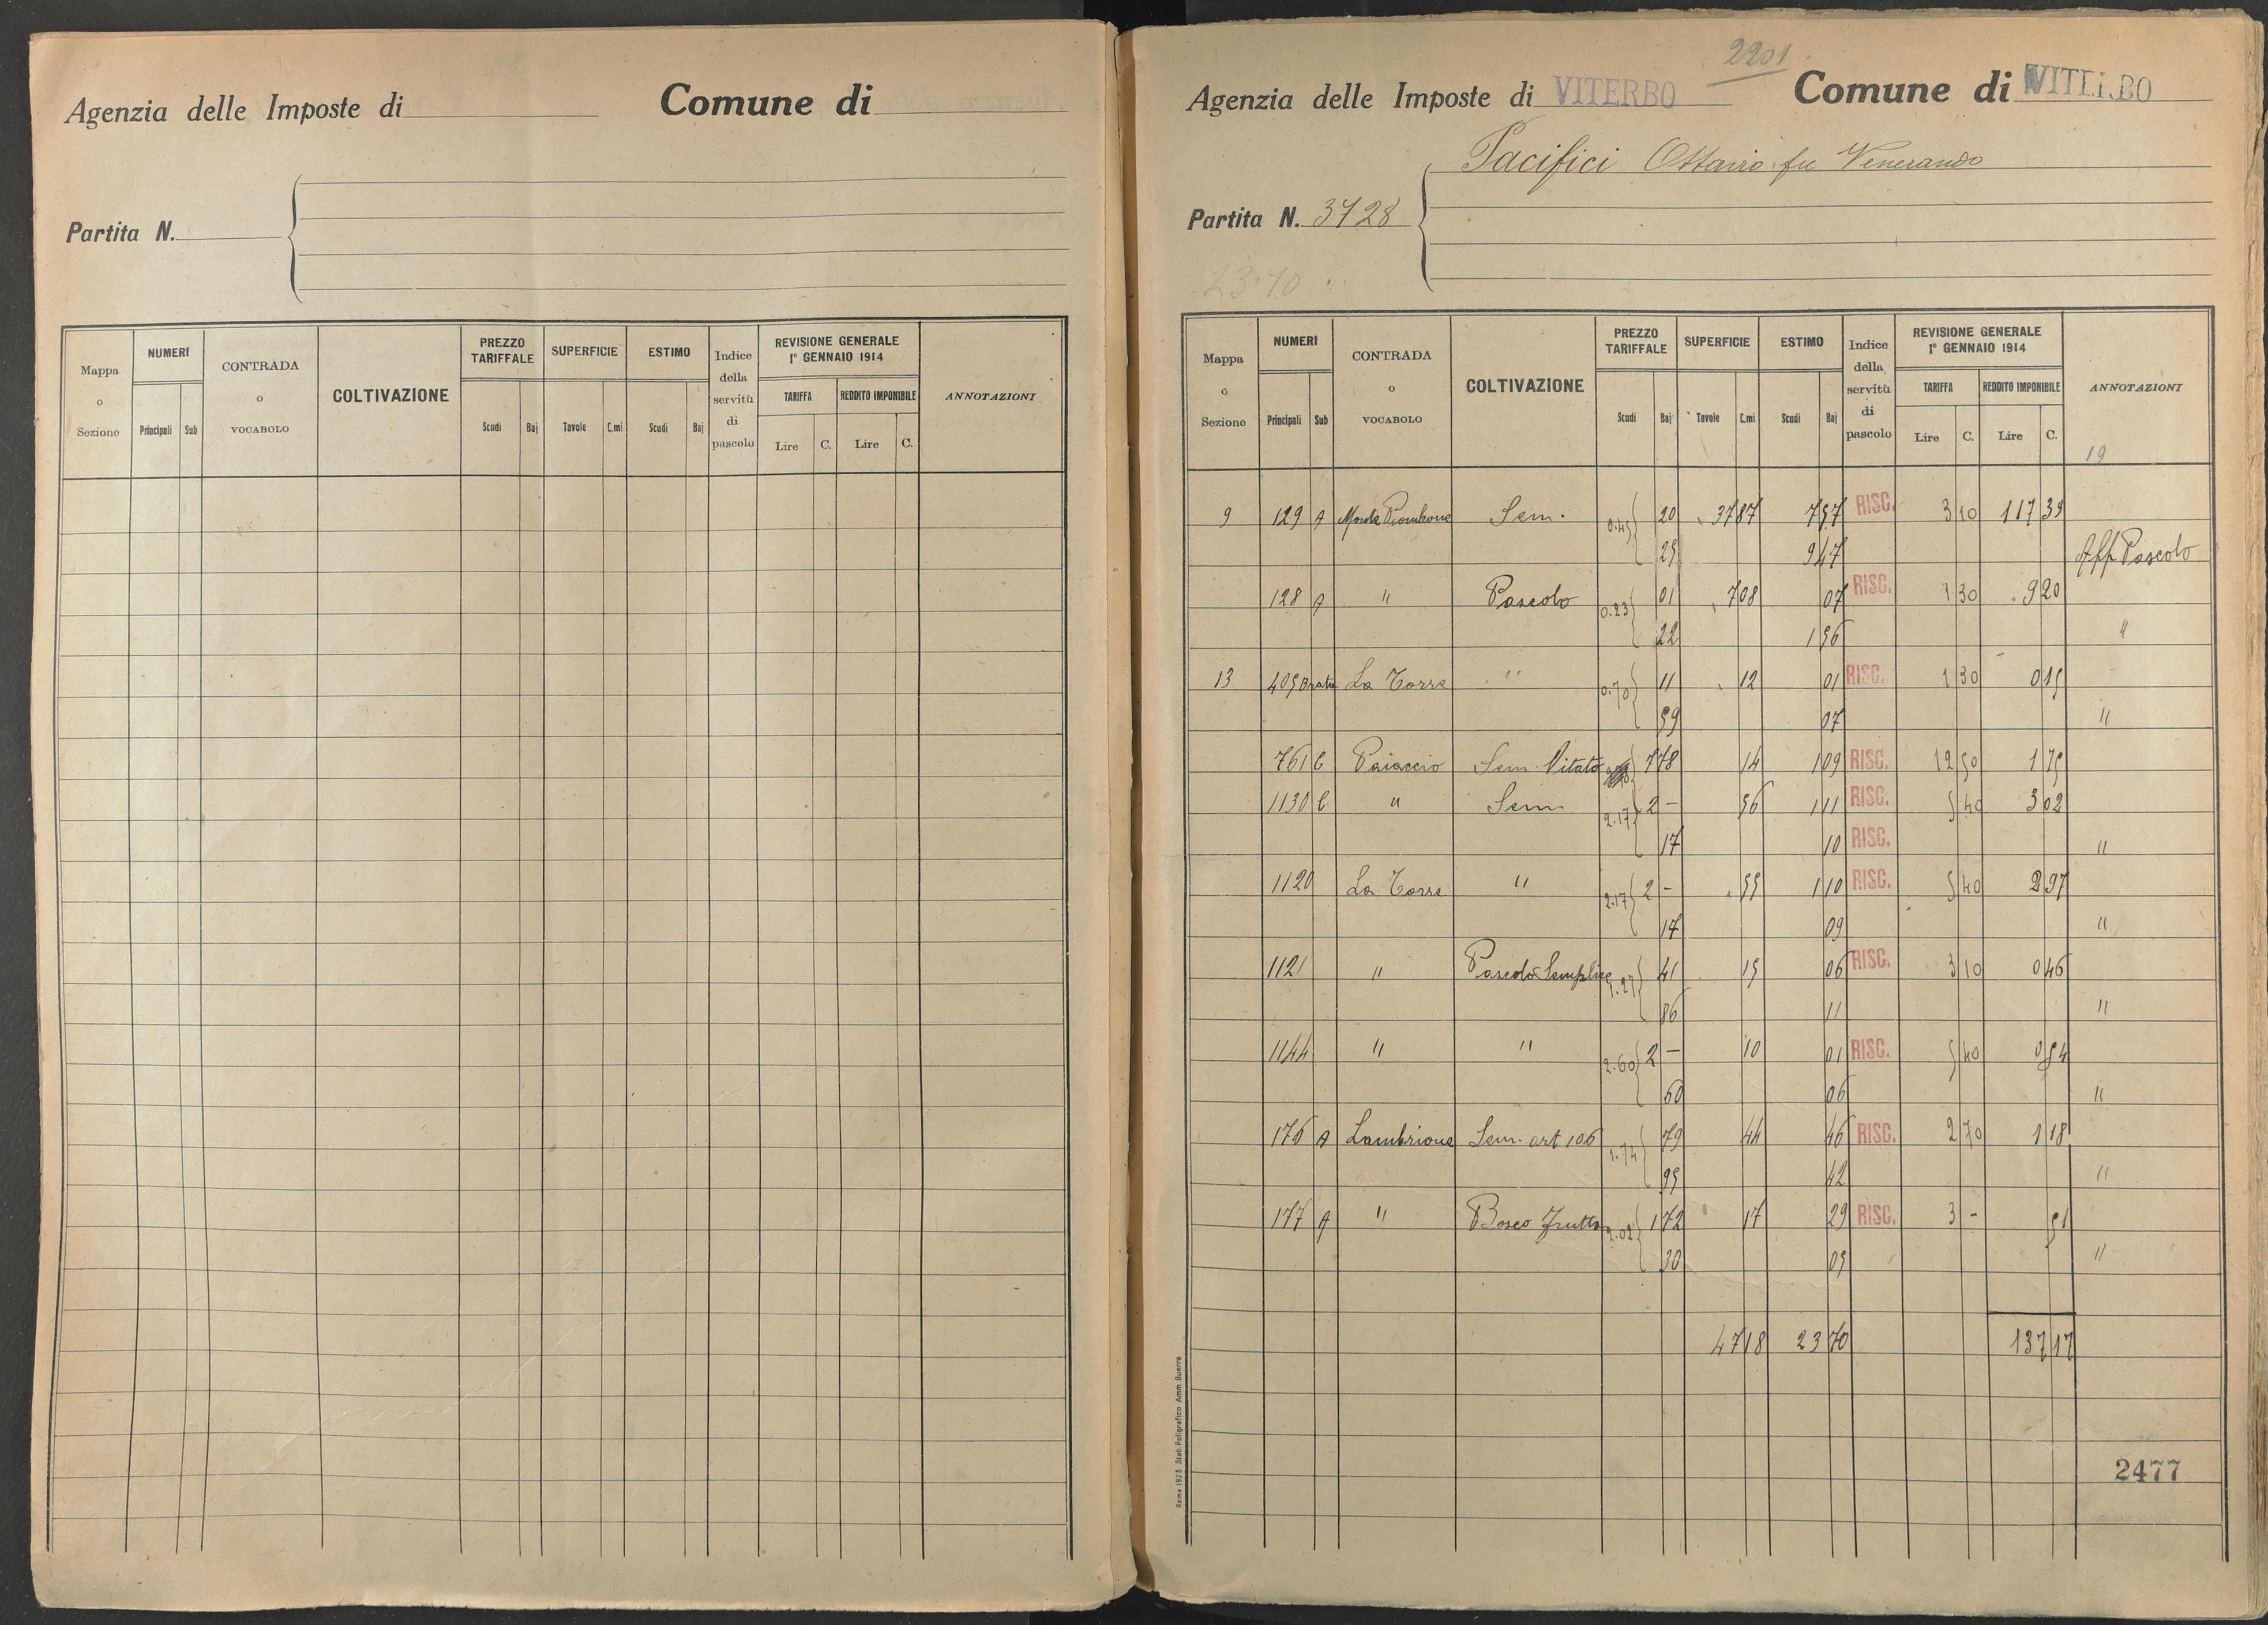 Agenzia delle Imposte di Comune di
Partita N.
Mappa o Sezione NUMERI CONTRADA o VOCABOLO COLTIVAZIONE PREZZO TARIFFALE SUPERFICIE ESTIMO Indice della servitù di pascolo REVISIONE GENERALE 1° GENNAIO 1914 ANNOTAZIONI
TARIFFA REDDITO IMPONIBILE
Principali Sub Scudi Baj Tavole C.mi Scudi Baj Lire C. Lire C.
2201
Agenzia delle Imposte di VITERBO Comune di VITERBO
Pacifici Ottavio fu Venerando
Partita N. 3728
23.70
Mappa o Sezione NUMERI CONTRADA o VOCABOLO COLTIVAZIONE PREZZO TARIFFALE SUPERFICIE ESTIMO Indice della servitù di pascolo REVISIONE GENERALE 1° GENNAIO 1914 ANNOTAZIONI
TARIFFA REDDITO IMPONIBILE
Principali Sub Scudi Baj Tavole C.mi Scudi Baj Lire C. Lire C.
19
9 129 A Monte Sem. 0.45 20 37 87 7 57 RISC. 3 10 117 39
25 9 47 Aff Pascolo
128 A " Pascolo 0.23 01 7 08 07 RISC. 1 30 9 20
22 1 56 "
13 405 La Torre " 0.70 11 12 01 RISC. 1 30 0 15
59 07 "
761 C Paiaccio Sem. Vitato 7 78 14 1 09 RISC. 12 50 1 75
1130 C " Sem 2.17 2 - 56 1 11 RISC. 5 40 3 02
17 10 RISC. "
1120 La Torre " 2.17 2 - 55 1 10 RISC. 5 40 2 97
17 09 "
1121 " Pascolo Semplice 1.27 41 15 06 RISC. 3 10 0 46
86 11 "
1144 " " 2.60 2 - 10 01 RISC. 5 40 0 54
60 06 "
176 A Lambrione Sem. art 106 1.74 79 44 46 RISC. 2 70 1 18
95 42 "
177 A " Bosco Frutto 2.02 1 72 17 29 RISC. 3 - 51
30 05 "
47 18 23 70 137 17
2477
Roma 1923 Stab. Poligrafico Amm. Guerra